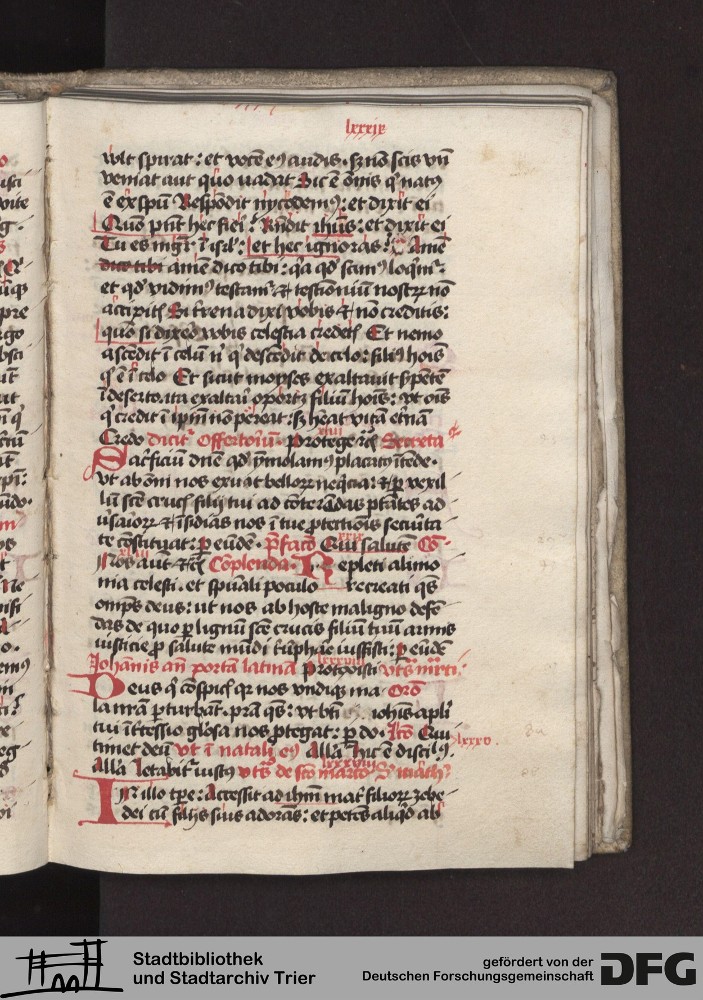 lxxxix
wlt spirat: et vocē eꝰ audis. sz nō scis vn̄
veniat aut quo vadat Sic ē ōnis q̄ natꝰ
ē ex spū Respondit nycodemꝰ: et dixit ei
Quō pn̄t hec fieri? Rn̄dit ihūs: et dixit ei
Tu es mgr̄ ī isrl̄: et hec ignoras? Amē
dico tibi amē dico tibi: q̄a qd̄ scimꝰ loq̄mr̄
et qd̄ vidimꝰ testam̄ & testimoniū nostrꝝ nō
accipitꝭ Si terrena dixi vobis & nō creditis:
quō si dixero vobis celestia credetꝭ Et nemo
ascēdit ī celū nˡ q̄ descēdit de celo: filiꝰ hoīs
q̄ ē ī celo Et sicut moyses exaltauit s̄pētē
ī deserto. ita exaltari oportꝫ filiū hoīs: vt oīs
q̄ credit ī ip̄m nō pereat: sz hēat vitā et̄nā
Credo dicit̄ Offertoriū Protege &c̄ Secreta
Sacrificiū dn̄e qd̄ ymolamꝰ placatꝰ ītēde.
vt ab om̄i nos exuat bellorꝝ neq̄cia: & ꝑ vexil
lū scē crucꝭ filij tui ad cōterēdas p̄tātes ad
v̄saiorꝝ & īsidias nos ī tue ꝓtectiōis secu͡ita
te cōstituat: ꝑ eūdē. p̄facō Qui salutē Cō
Nos aūt &c̄ Cōplenda Repleti alimo
nia celesti. et sp̄uali poculo recreati qs̄
omp̄s deus: ut nos ab hoste maligno defē
das de quo ꝑ lignū scē crucis filiū tuū armis
iusticie ꝓ salute mūdi t͡umphare iussisti: ꝑ eūdē
Johānis an̄ portā latinā Protexisti vt s̄ mr̄ti.
Deus q̄ cōspicꝭ qz nos vndiqꝫ ma Orō
la nr̄a ꝑturbāt. p̄ra qs̄: vt bt̄i iohīs apl̄i
tui īt̄cessio gl̄osa nos ꝓtegat: ꝑ do. Ītō Qui
timet deū vt ī natali eꝰ Alla Hic ē discilꝰ lxxxv.
Alla Letabit̄ iustꝰ vt s̄ de scō marcō S mathꝫ
In illo tp̄e: Accessit ad ihm̄ mat̄ filiorꝝ zebe
dei cū filijs suis adorās: et petēs aliqd̄ ab
Stadtbibliothek
und Stadtarchiv Trier
gefördert von der
Deutschen Forschungsgemeinschaft
DFG